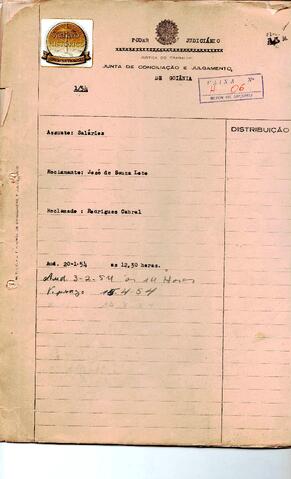 PODER JUDICIÁRIO
JUSTIÇA DO TRABALHO
JUNTA DE CONCILIAÇÃO E JULGAMENTO
DE GOIÂNIA
1/54
CAIXA Nº
06
DISTRIBUIÇÃO
Assunto: Salários
Reclamante: José de Souza Leto
Reclamado : Rodrigues Cabral
Aud. 20-1-54 as 12,30 horas.
Aud 3-2-54 as 14 Horas
15.4-54